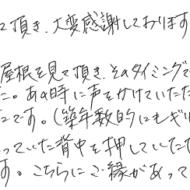 て頂き、大変感謝しております
屋根を見て頂き、そのタイミングで
た。あの時に声をかけていただ
です。(築年数的にもギリ
っていた背中を押していただ
す。こちらにご縁があって